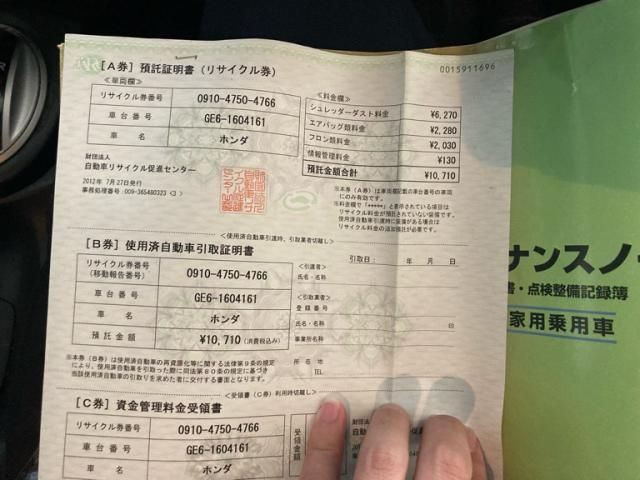 0015911696
［A券］預託証明書（リサイクル券）
＜車両欄＞
リサイクル券番号 0910-4750-4766
車台番号 GE6-1604161
車名 ホンダ
＜料金欄＞
シュレッダーダスト料金 ¥6,270
エアバッグ類料金 ¥2,280
フロン類料金 ¥2,030
情報管理料金 ¥130
預託金額合計 ¥10,710
財団法人
自動車リサイクル促進センター
2012年 7月27日発行
事務処理番号:009-365480323 <3 >
※本券（A券）は車両欄記載の車台番号の車両
にのみ有効です。
※料金欄で「*****」と表示されている項目は
リサイクル料金が預託されていない装備です。
使用済自動車引渡時に装備がある場合は
リサイクル料金の追加預託が必要です。
＜使用済自動車引渡時、引取業者切離し＞
［B券］使用済自動車引取証明書
リサイクル券番号
(移動報告番号) 0910-4750-4766
車台番号 GE6-1604161
車名 ホンダ
預託金額 ¥10,710 (消費税込み)
引取日： 年 月 日
＜引渡者＞
氏名・名称
＜引取業者＞
登録番号
氏名・名称 印
事業所名
所在地
TEL
※本券（B券）は使用済自動車の再資源化等に関する法律第9条の規定
により、使用済自動車を引取った際に同法第80条の規定に基づき
当該使用済自動車の引取りを求めた者に交付する書面となります。
＜受領書（C券）利用時切離し＞
［C券］資金管理料金受領書
リサイクル券番号 0910-4750-4766
車台番号 GE6-1604161
車名 ホンダ
受領金額
財団法人
自動車
ナンスノ
書・点検整備記録簿
家用乗用車